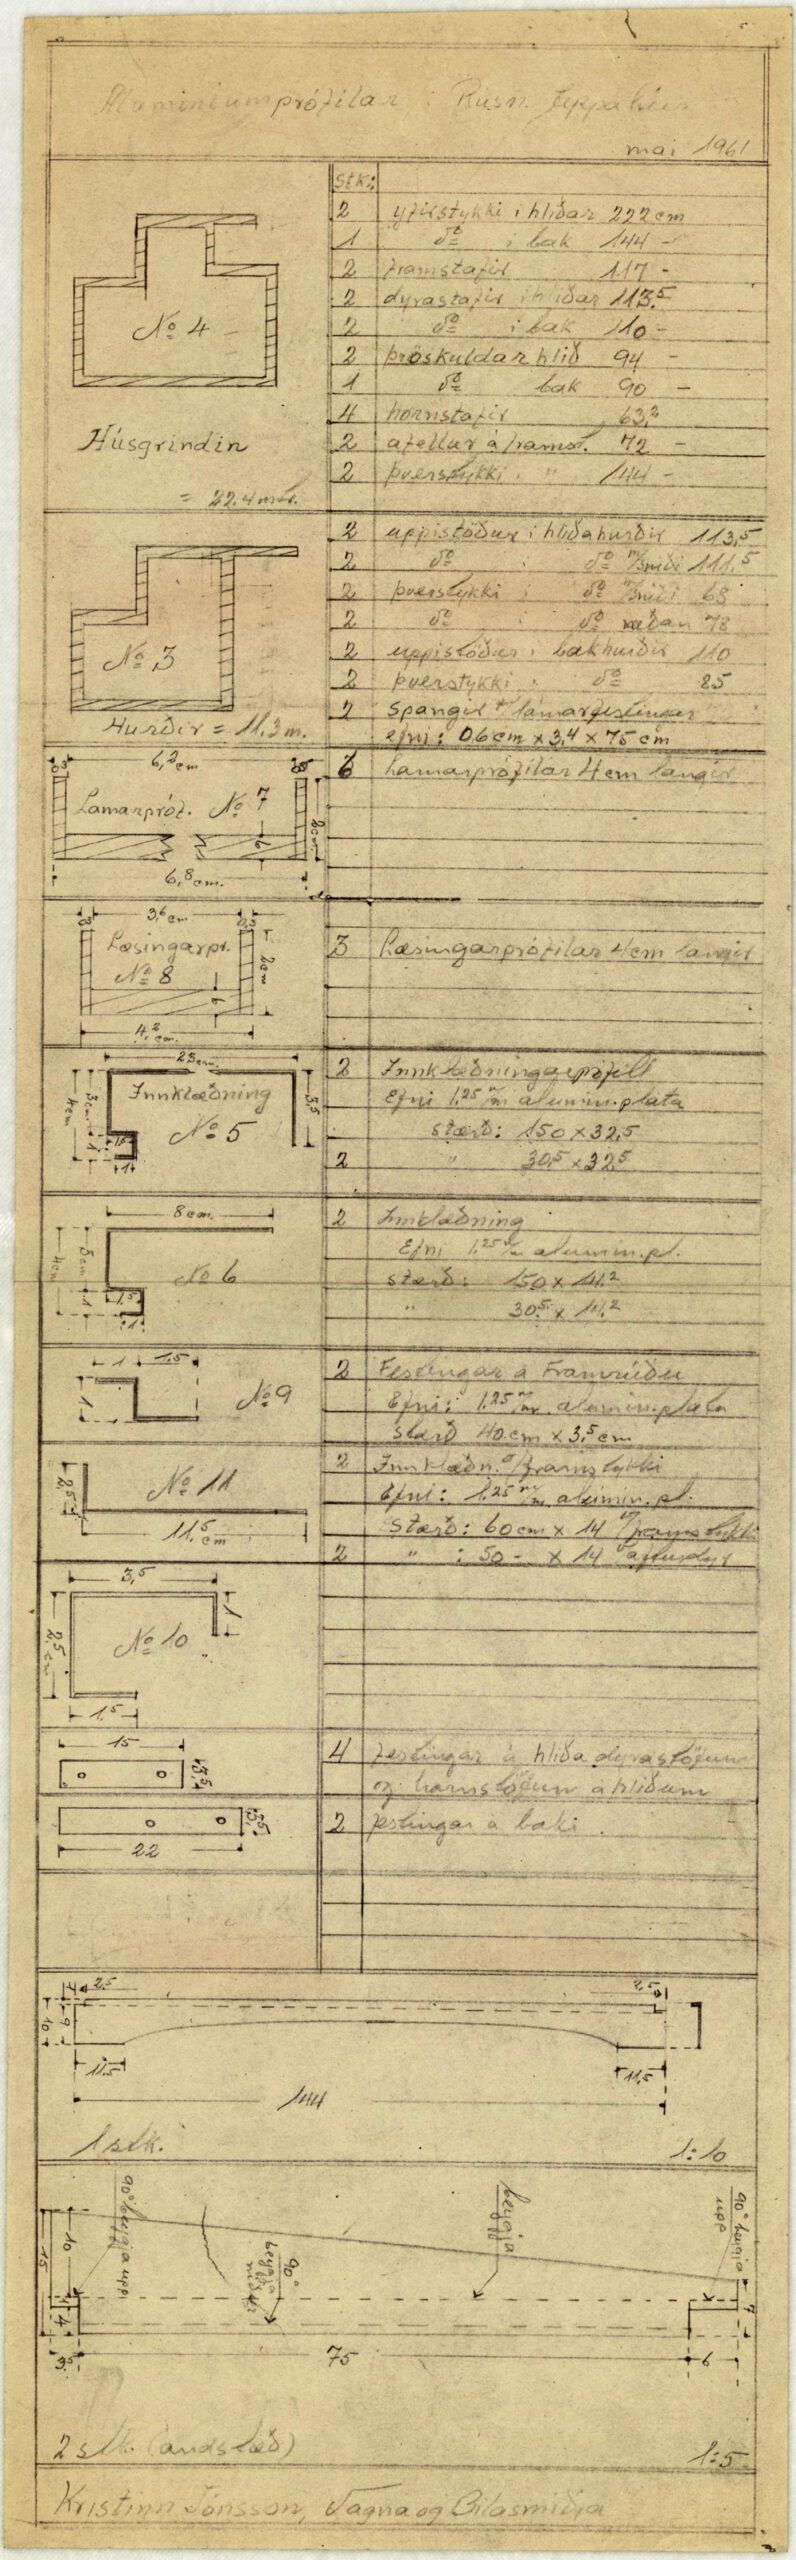 Aluminiumprófilar í Rúsn. Jeppahús
mai 1961
stk:
2 yfirstykki í hliðar 222 cm
1 do í bak 144 -
2 framstafir 117 -
2 dyrastafir í hliðar 113,5
2 do í bak 110 -
2 þröskuldar hlið 94 -
1 do bak 90 -
4 hornstafir 63,2
2 á framst. 72 -
2 þverstykki " 144 -
No 4
Húsgrindin
= 22.4 mtr.
2 uppistöður í hliðahurðir 113,5
2 do : do m/sniði 111,5
2 þverstykki : do m/sniði 68
2 do : do neðan 78
2 uppistöður í bakhurðir 110
2 þverstykki : do 85
2 spangir f/ lamarfestingar
efni: 0.6 cm x 3,4 x 75 cm
No 3
Hurðir = 11.3 m.
6,2 cm
Lamarpróf. No 7
2 cm
6
6,8 cm.
6 Lamarprófílar 4 cm langir
3,6 cm
0,3
Læsingarpr.
No 8
2 cm
6
4,2 cm.
3 Læsingarprófílar 4 cm langir
25 cm
Innklæðning
No 5
3 cm
4 cm
1,5
1
1
3,5
2 Innklæðningaprófíll
Efni 1,25 m/m alumin.plata
stærð: 150 x 32,5
2 " 30,5 x 32,5
8 cm.
No 6
3 cm
4 cm
1
1,5
1
2 Innklæðning
Efni 1,25 m/m alumin.pl.
stærð: 150 x 14,2
" 30,5 x 14,2
1 1,5
1
No 9
2 Festingar á Framrúðu
Efni: 1,25 m/m alumin.plata
stærð 40 cm x 3,5 cm
No 11
2,5
11,5 cm
2 Innklæðn. á/framstykki
Efni: 1,25 m/m alumin.pl.
Stærð: 60 cm x 14 framstykki
2 " : 50 - x 14
3,5
1
No 10
2,5 cm
1,5
15
3,5
4 festingar á hliða dyrastöfum
og hornstöfum á hliðum
22
3,5
2 festingar á baki
7 2,5
2,5
10 9
11,5
11,5
144
1 stk.
1:10
90° beygja upp
90° beygja niður
beygja
90° beygja upp
15 10
4
7
3,5
75
6
2 stk. (andstæð)
1:5
Kristinn Jónsson, Vagna og Bílasmiðja